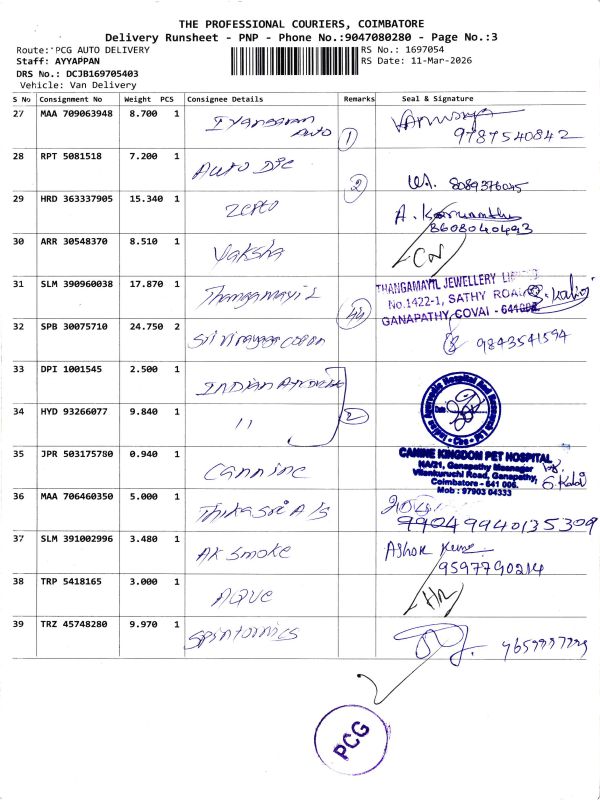 THE PROFESSIONAL COURIERS, COIMBATORE
Delivery Runsheet - PNP - Phone No.:9047080280 - Page No.:3
Route: PCG AUTO DELIVERY
RS No.: 1697054
Staff: AYYAPPAN
RS Date: 11-Mar-2026
DRS No.: DCJB169705403
Vehicle: Van Delivery
S No Consignment No Weight PCS Consignee Details Remarks Seal & Signature
27 MAA 709063948 8.700 1 Iyangaran Auto 1
9787540842
28 RPT 5081518 7.200 1 Auto Dic 2
8089376045
29 HRD 363337905 15.340 1 Zepto A.
8608040493
30 ARR 30548370 8.510 1 Vaksha
31 SLM 390960038 17.870 1 Thangamayil
THANGAMAYIL JEWELLERY LIMITED
No.1422-1, SATHY ROAD
GANAPATHY, COVAI - 641006.
32 SPB 30075710 24.750 2 Sri Vinayaga
9843541594
33 DPI 1001545 2.500 1 INDIAN
34 HYD 93266077 9.840 1 11 2
35 JPR 503175780 0.940 1 Cannine
CANINE KINGDOM PET HOSPITAL
NA/21, Ganapathy Maanagar
Vilankuruchi Road, Ganapathy,
Coimbatore - 641 006.
Mob : 97903 04333
36 MAA 706460350 5.000 1
9904 9940135309
37 SLM 391002996 3.480 1 AK Smoke Ashok Kumar
9597790214
38 TRP 5418165 3.000 1 Aque HR
39 TRZ 45748280 9.970 1 Spintornics
PCG